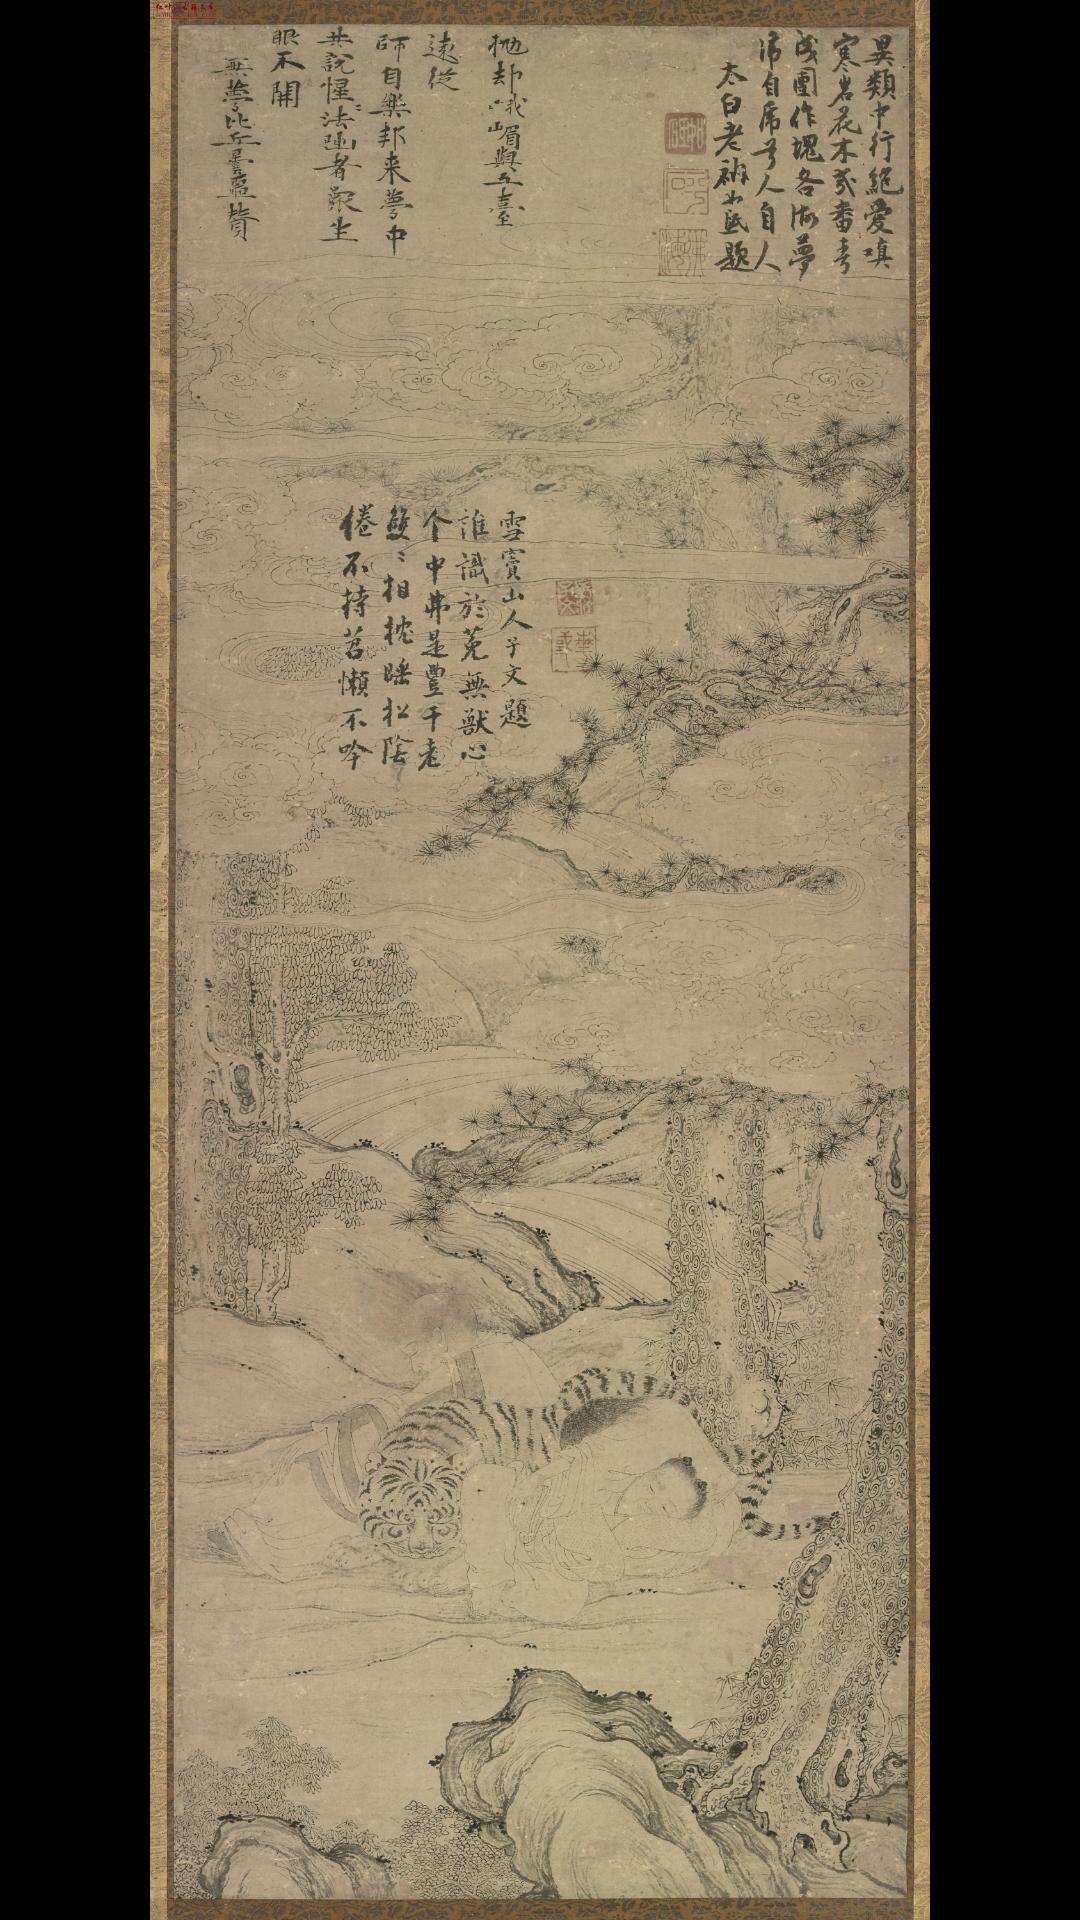 異類中行絕愛嗔
寒岩花木幾番春
成團作塊各做夢
虎自虎兮人自人
太白老衲如砥題
拋却峨嵋與五臺
遠從
師自樂邦来夢中
共說惺〻法者衆生
眼不開
無夢比丘曇噩贊
倦不持苕懶不吟
雙〻相枕睡松陰
个中弗是豐干老
誰識於菟無獸心
雪竇山人子文題